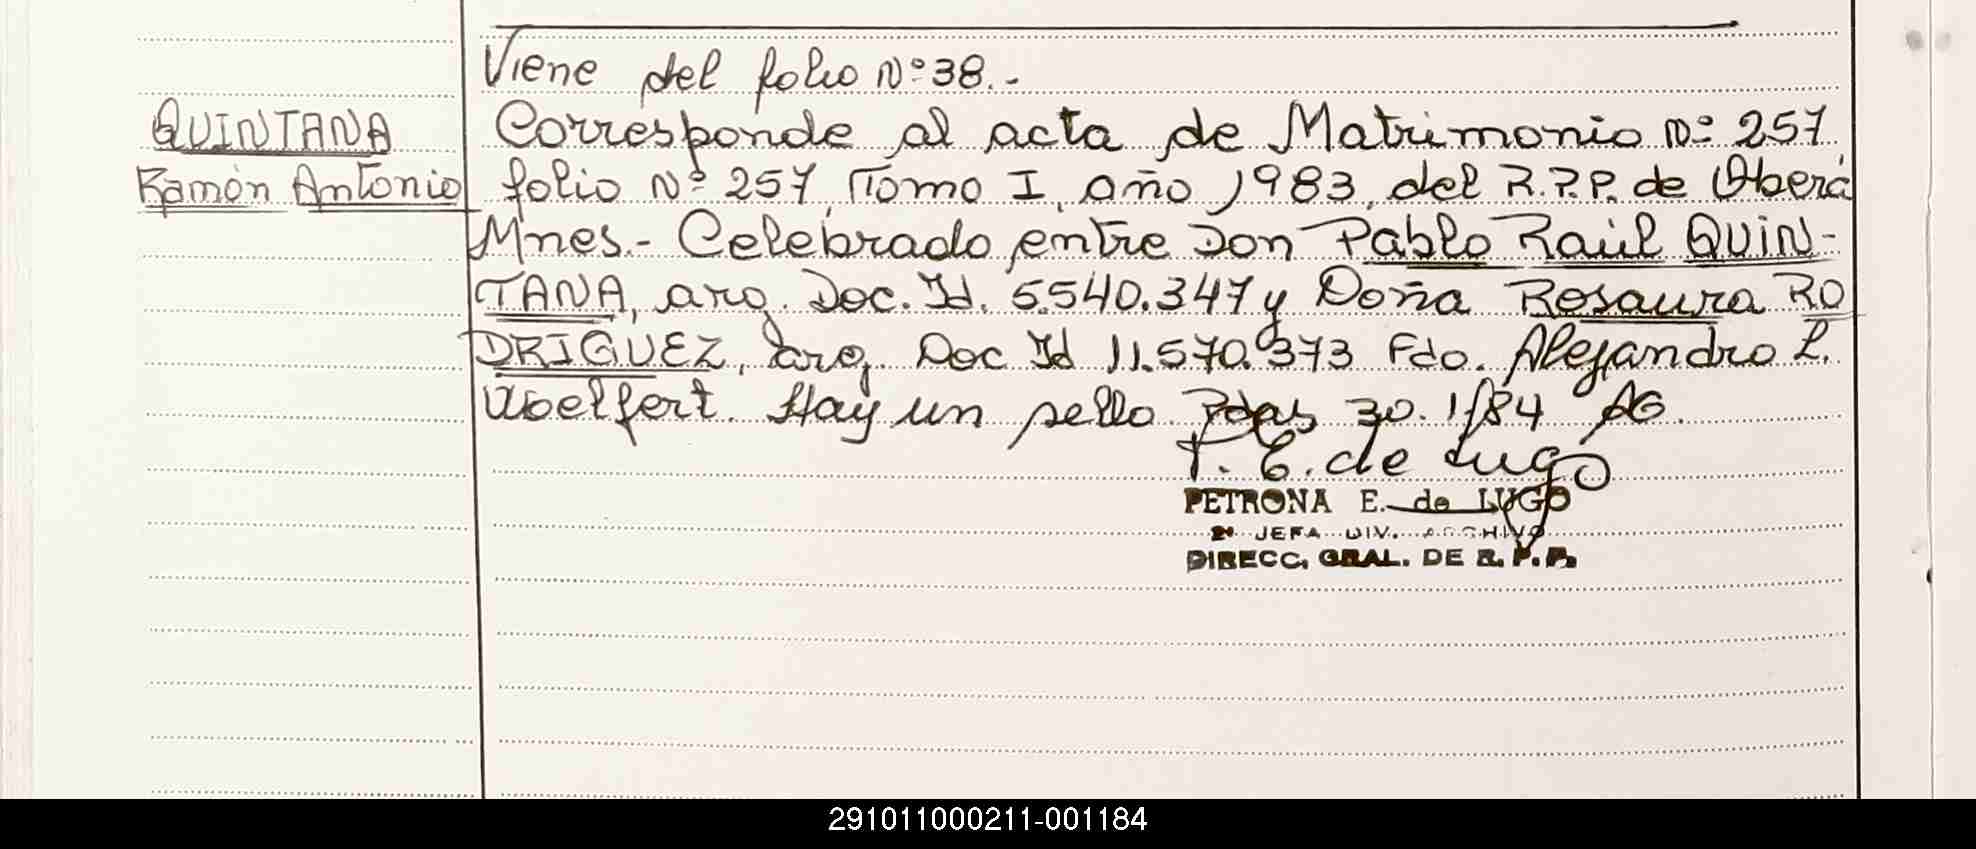 Viene del folio Nº 38.-
QUINTANA
Ramón Antonio
Corresponde al acta de Matrimonio Nº 257
folio Nº 257, Tomo I, año 1983, del R.P.P. de Oberá
Mnes.- Celebrado entre Don Pablo Raúl QUIN-
TANA, arg. Doc. Id. 5.540.347 y Doña Rosaura RO
DRIGUEZ, arg. Doc Id 11.570.373 Fdo. Alejandro L.
Woelfert. Hay un sello Pdas 30.1/84 AG.
P. E. de Lugo
PETRONA E. de LUGO
2º JEFA DIV. ARCHIVO
DIRECC. GRAL. DE R. P. P.
291011000211-001184